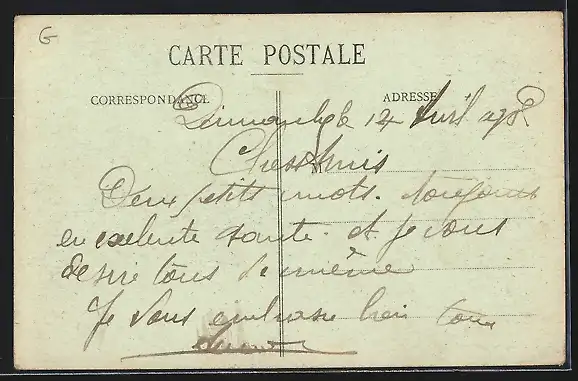 G
CARTE POSTALE
CORRESPONDANCE
ADRESSE
Dimanche 14 Avril
Chers Amis
M
Deux petits mots. toujours
en exelente sante. et je vous
desire tous de même
Je vous embrasse bien tous